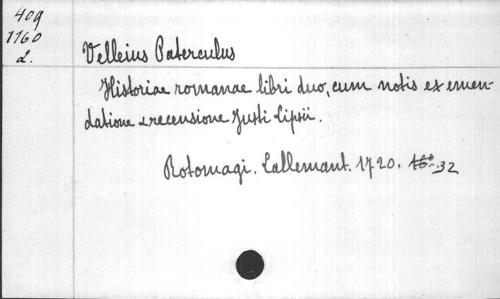 409
1160
L.
Velleius Paterculus
Historiae romanae libri duo, cum notis ex emen-
datione & recensione Justi Lipsii.
Rotomagi. Lallemant. 1720. 16º. 32